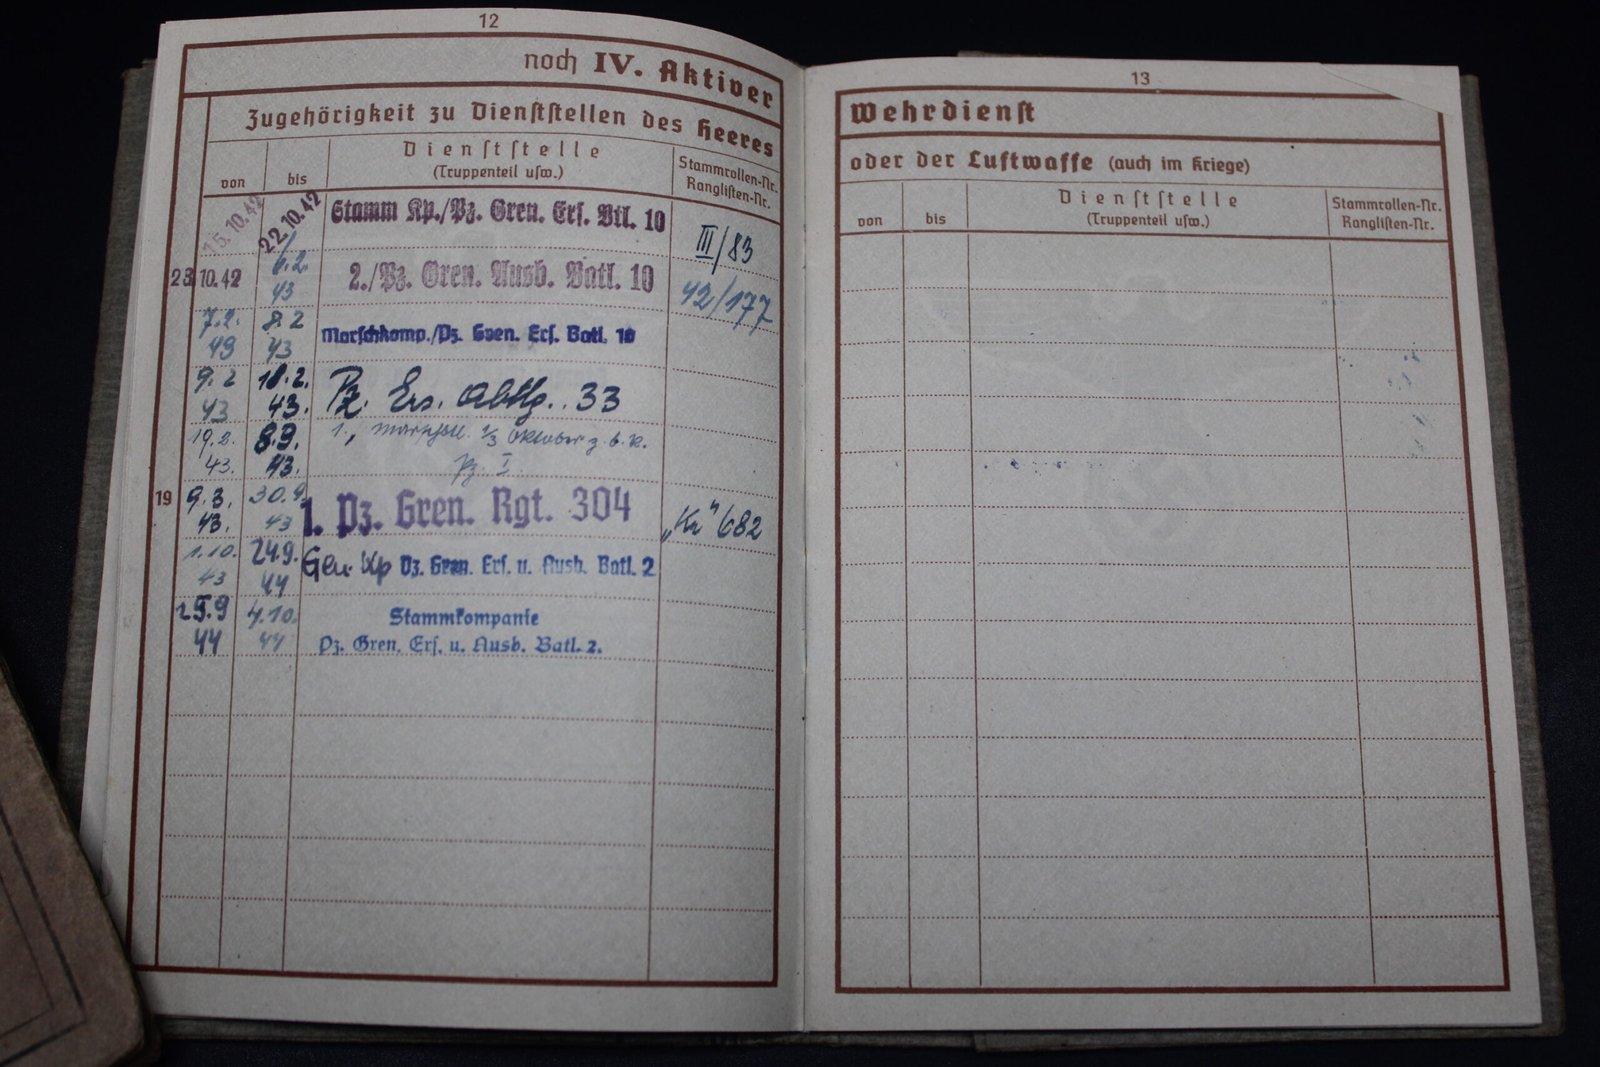 12
noch IV. Aktiver
Zugehörigkeit zu Dienststellen des Heeres
von
bis
Dienststelle
(Truppenteil usw.)
Stammrollen-Nr.
Ranglisten-Nr.
15.10.42 22.10.42 Stamm Kp./Pz. Gren. Ers. Btl. 10 III/83
23.10.42 6.2. 43 2./Pz. Gren. Ausb. Batl. 10 42/177
7.2. 43 8.2 43 Marschkomp./Pz. Gren. Ers. Batl. 10
9.2 43 18.2. 43. Pz. Ers. Abtlg. 33
19.2. 43. 8.9. 43. 1., Oktober z. b. V.
19 9.3. 43. 30.9. 43 1. Pz. Gren. Rgt. 304 "Kr" 682
1.10. 43 24.9. 44 Gen. Kp Pz. Gren. Ers. u. Ausb. Batl. 2
25.9 44 4.10. 44 Stammkompanie
Pz. Gren. Ers. u. Ausb. Batl. 2.
13
Wehrdienst
oder der Luftwaffe (auch im Kriege)
von
bis
Dienststelle
(Truppenteil usw.)
Stammrollen-Nr.
Ranglisten-Nr.